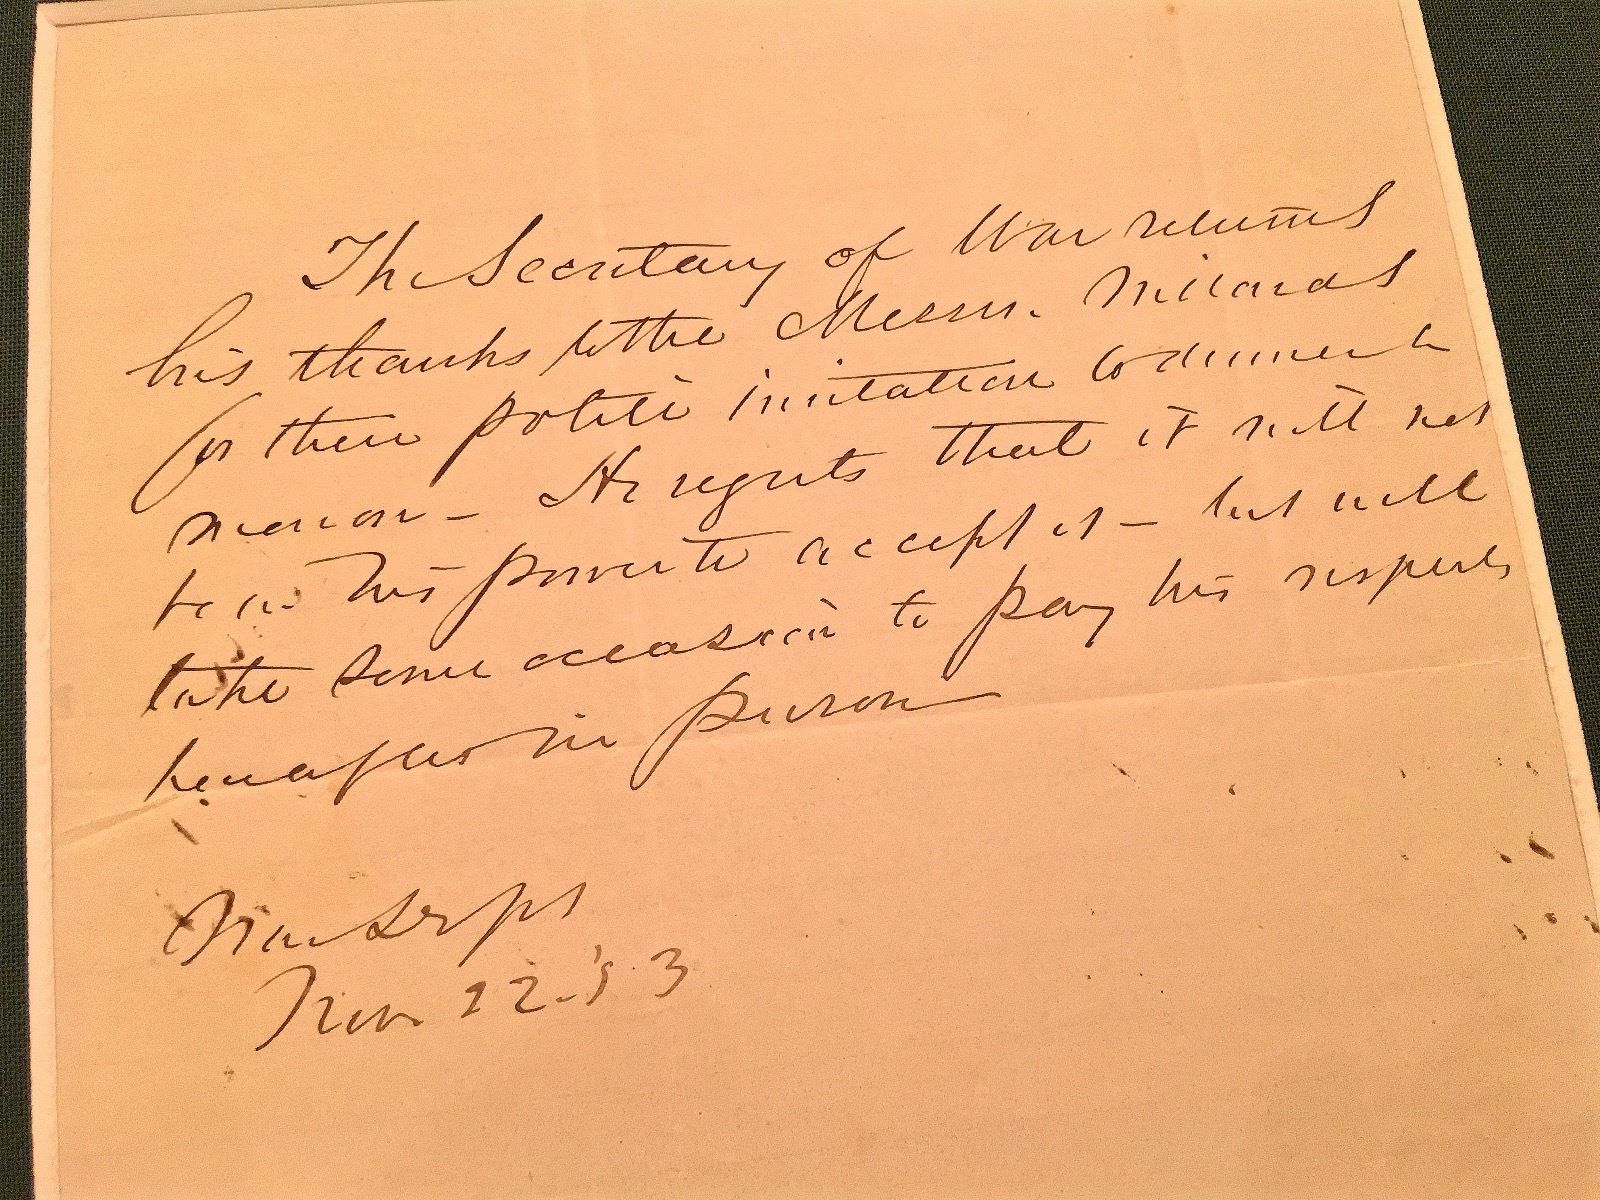 The Secretary of War returns
his thanks to the Messrs. Millards
for their polite invitation to dinner
He regrets that it will not
be in his power to accept it – but will
take some occasion to pay his respects
hereafter in person
War Dept
Nov 22. '53